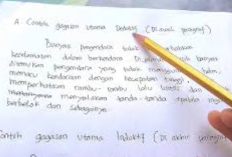 A. Contoh gagasan utama Deduktif (Di awal paragraf)
Banyak pengendara tidak
keselamatan dalam berkendara. Di banyak
ditemukan pengendara yang tidak helm,
kendaraan dengan kecepatan tinggi,
memperhatikan rambu-rambu lalu lintas dan
menyalakan tanda-tanda apabila
berbelok dan sebagainya.
Contoh gagasan utama Induktif (Di akhir